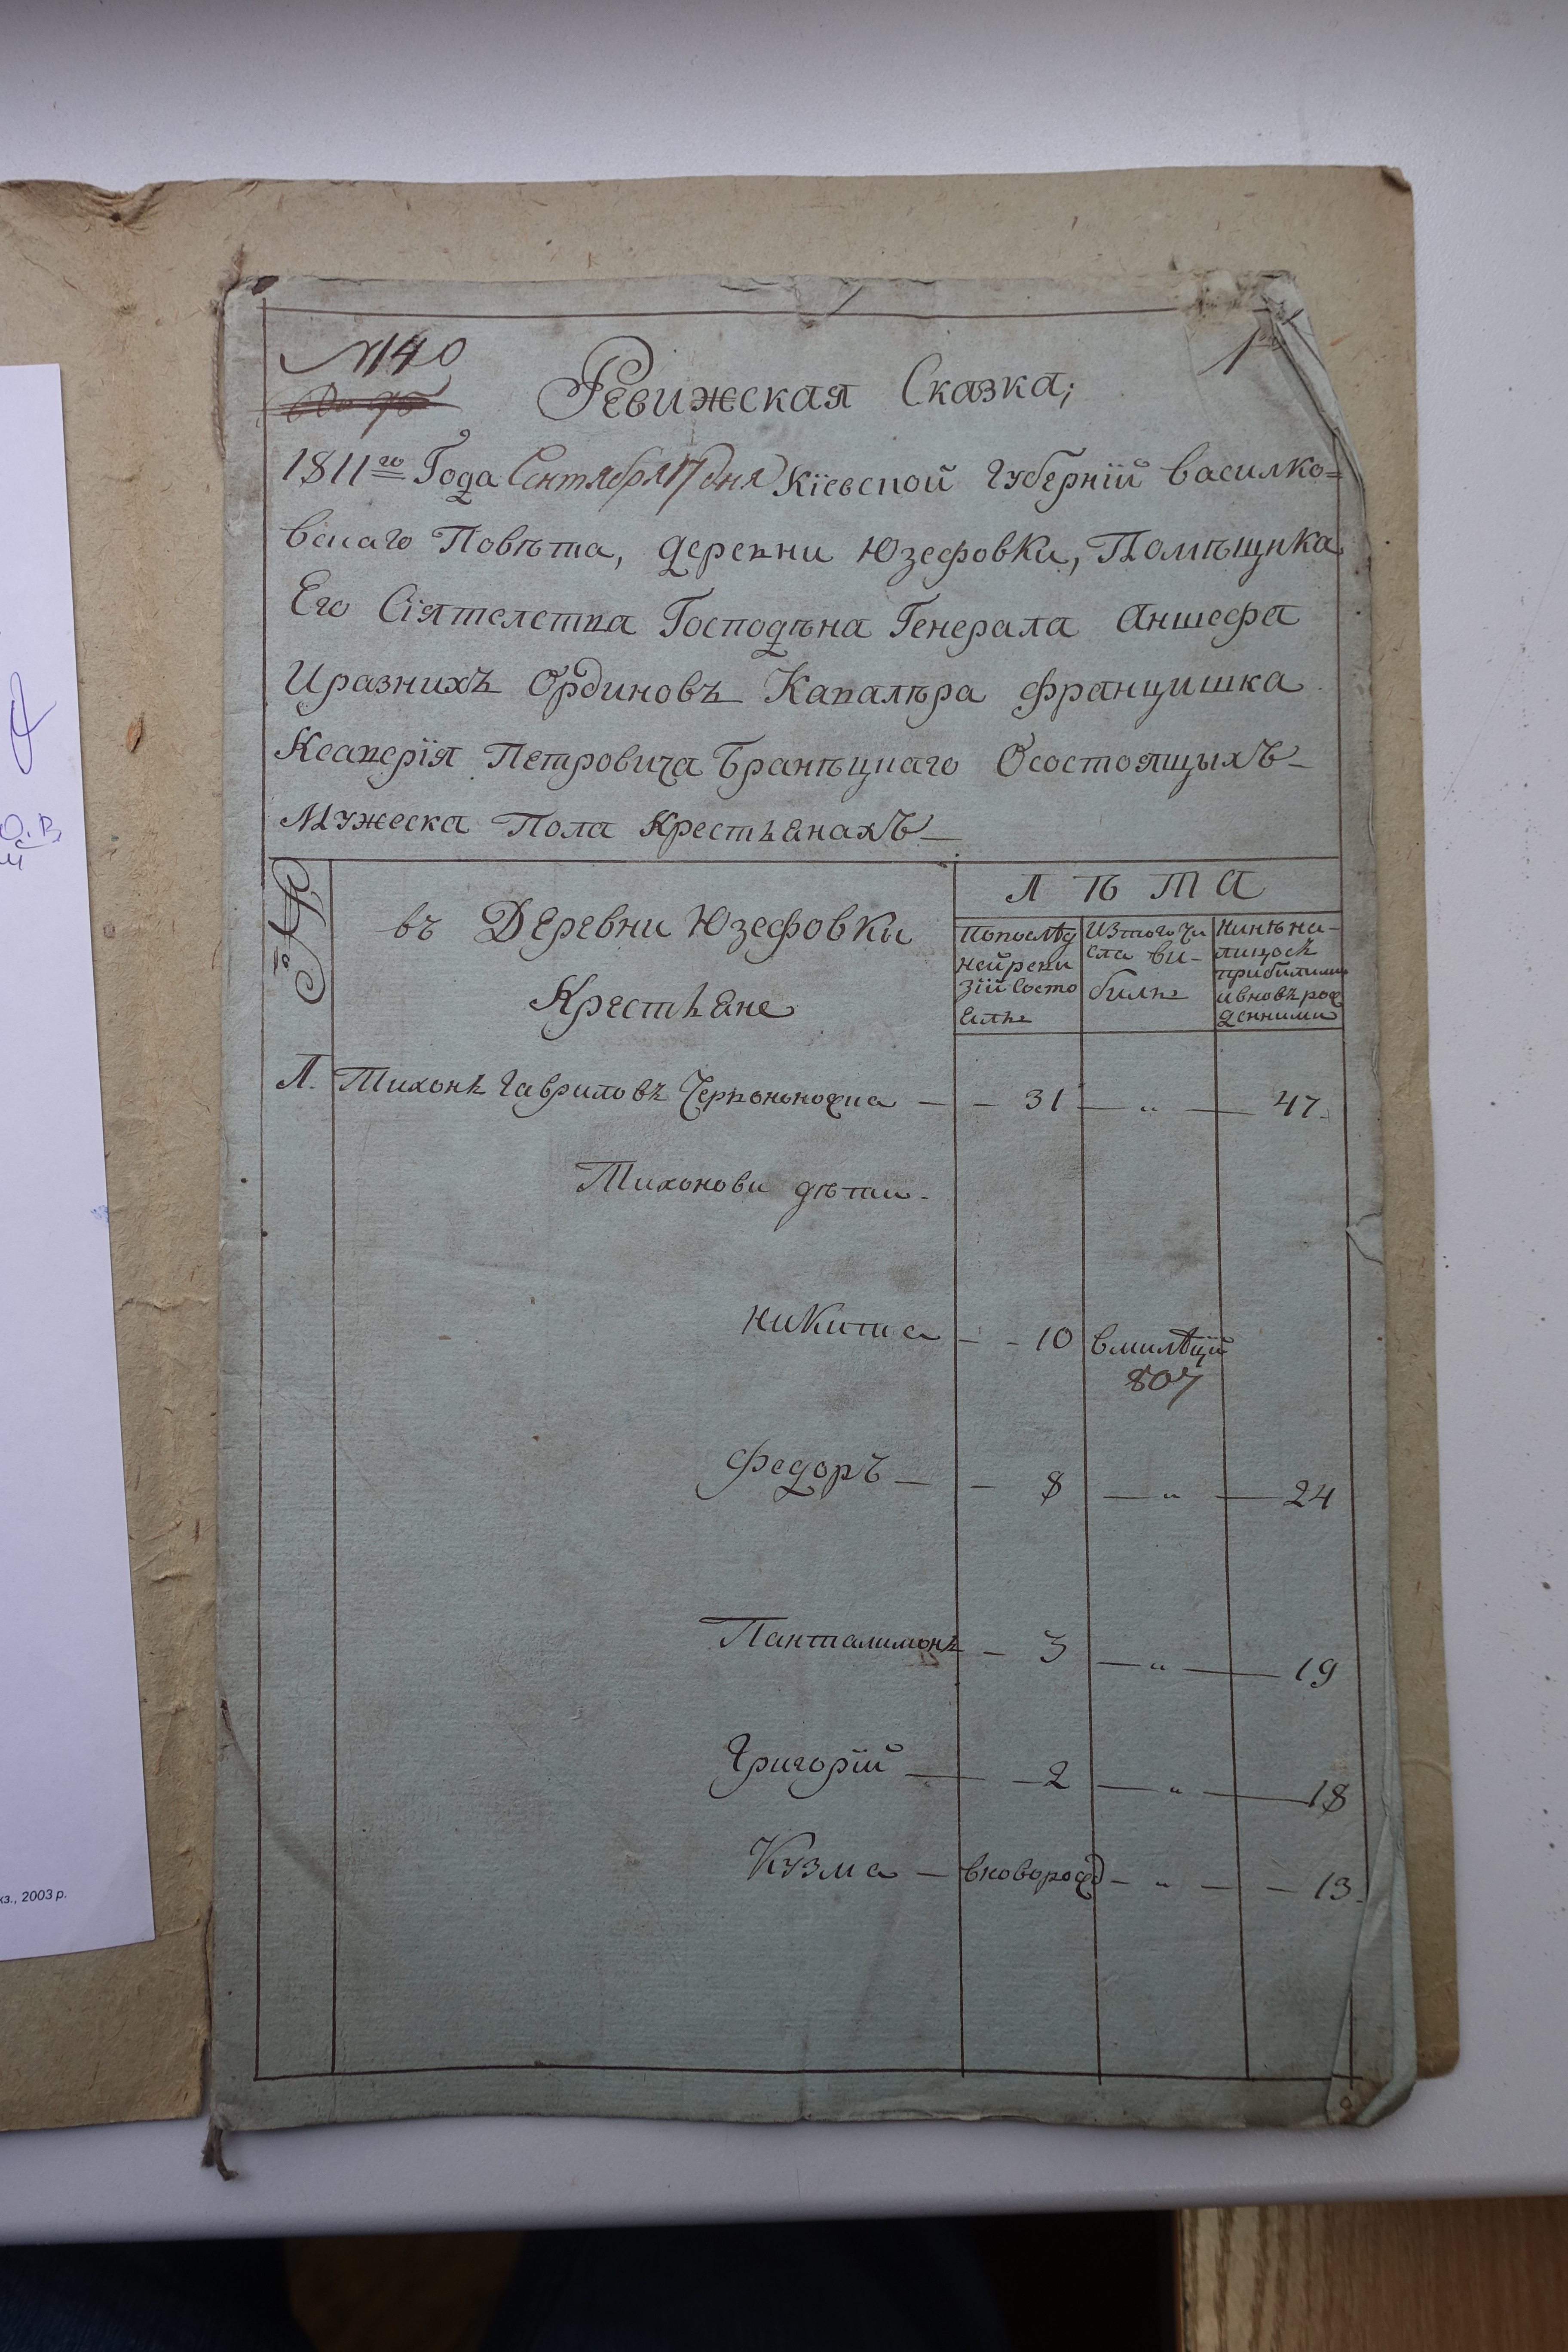 №140
1
Ревижская Сказка;
1811го Года Сентября 17 дня Кіевской Губерніи Василко=
вскаго Повѣта, деревни Юзефовки, Помѣщика
Его Сіятелства Господѣна Генерала Аншефа
И разнихъ Ординовъ Кавалѣра Францишка
Ксаверія Петровича Бранѣцкаго О состоящыхъ
Мужеска Пола Крестьянахъ
№
въ Деревни Юзефовки
Крестьяне
Лѣта
По послѣд
ней реви
зіи Состо
яль
Из того чи
сла ви-
биль
Нинѣ на-
лицосъ
прибилими
и вновъ рож
денними
1. Тихонъ Гавриловъ Червононожка — 31 — „ — 47.
Тихонови дѣти.
Никита — 10 в милѣціи
807
Федоръ — 8 — „ — 24
Пантилимонъ — 3 — „ — 19
Григорій — 2 — „ — 18
Кузма — вноворожд — „ — 13.
О. В.
кз., 2003 р.